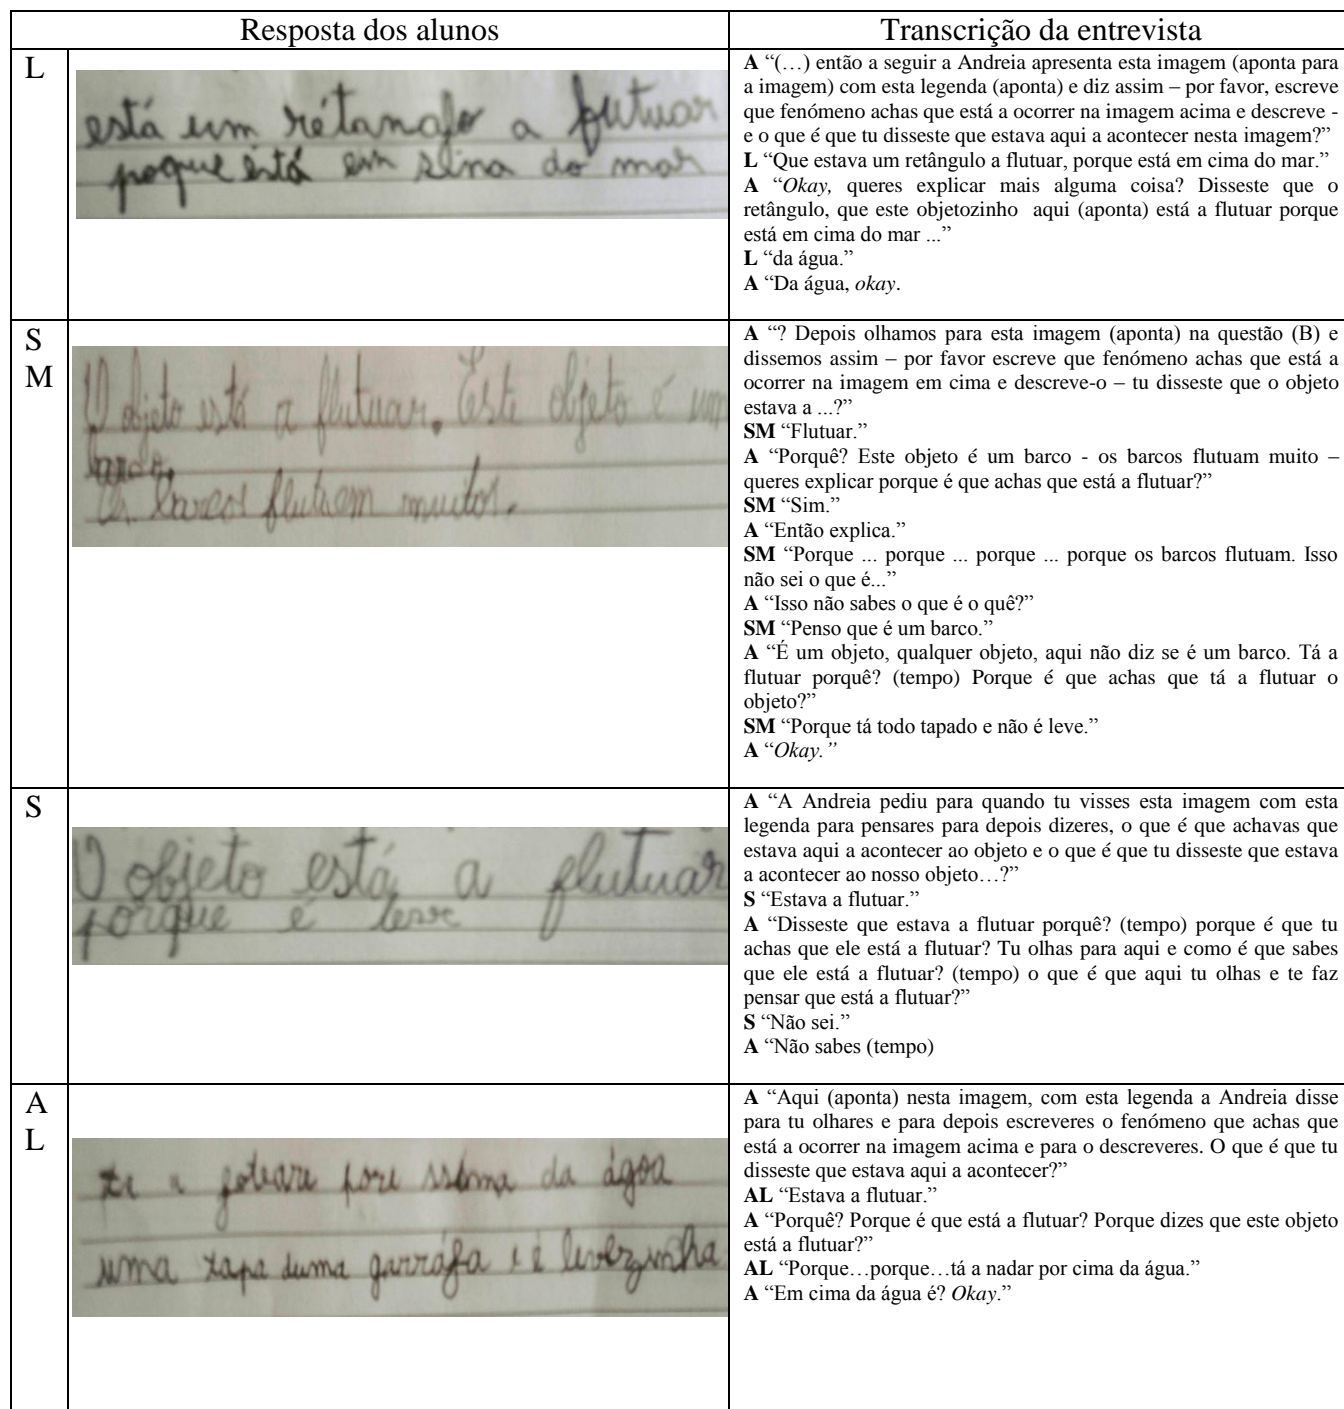 Resposta dos alunos
Transcrição da entrevista
L
está um rétanglo a flutuar
poque está em sima do mar
A “(…) então a seguir a Andreia apresenta esta imagem (aponta para
a imagem) com esta legenda (aponta) e diz assim – por favor, escreve
que fenómeno achas que está a ocorrer na imagem acima e descreve -
e o que é que tu disseste que estava aqui a acontecer nesta imagem?”
L “Que estava um retângulo a flutuar, porque está em cima do mar.”
A “Okay, queres explicar mais alguma coisa? Disseste que o
retângulo, que este objetozinho aqui (aponta) está a flutuar porque
está em cima do mar ...”
L “da água.”
A “Da água, okay.
S
M
O objeto está a flutuar. Este objeto é um
barco.
Os barcos flutuem muitos.
A “? Depois olhamos para esta imagem (aponta) na questão (B) e
dissemos assim – por favor escreve que fenómeno achas que está a
ocorrer na imagem em cima e descreve-o – tu disseste que o objeto
estava a ...?”
SM “Flutuar.”
A “Porquê? Este objeto é um barco - os barcos flutuam muito –
queres explicar porque é que achas que está a flutuar?”
SM “Sim.”
A “Então explica.”
SM “Porque ... porque ... porque ... porque os barcos flutuam. Isso
não sei o que é...”
A “Isso não sabes o que é o quê?”
SM “Penso que é um barco.”
A “É um objeto, qualquer objeto, aqui não diz se é um barco. Tá a
flutuar porquê? (tempo) Porque é que achas que tá a flutuar o
objeto?”
SM “Porque tá todo tapado e não é leve.”
A “Okay.”
S
O objeto está a flutuar
porque é leve
A “A Andreia pediu para quando tu visses esta imagem com esta
legenda para pensares para depois dizeres, o que é que achavas que
estava aqui a acontecer ao objeto e o que é que tu disseste que estava
a acontecer ao nosso objeto…?”
S “Estava a flutuar.”
A “Disseste que estava a flutuar porquê? (tempo) porque é que tu
achas que ele está a flutuar? Tu olhas para aqui e como é que sabes
que ele está a flutuar? (tempo) o que é que aqui tu olhas e te faz
pensar que está a flutuar?”
S “Não sei.”
A “Não sabes (tempo)
A
L
a pore da ágoa
uma tapa duma garráfa i é levezinha
A “Aqui (aponta) nesta imagem, com esta legenda a Andreia disse
para tu olhares e para depois escreveres o fenómeno que achas que
está a ocorrer na imagem acima e para o descreveres. O que é que tu
disseste que estava aqui a acontecer?”
AL “Estava a flutuar.”
A “Porquê? Porque é que está a flutuar? Porque dizes que este objeto
está a flutuar?”
AL “Porque…porque…tá a nadar por cima da água.”
A “Em cima da água é? Okay.”